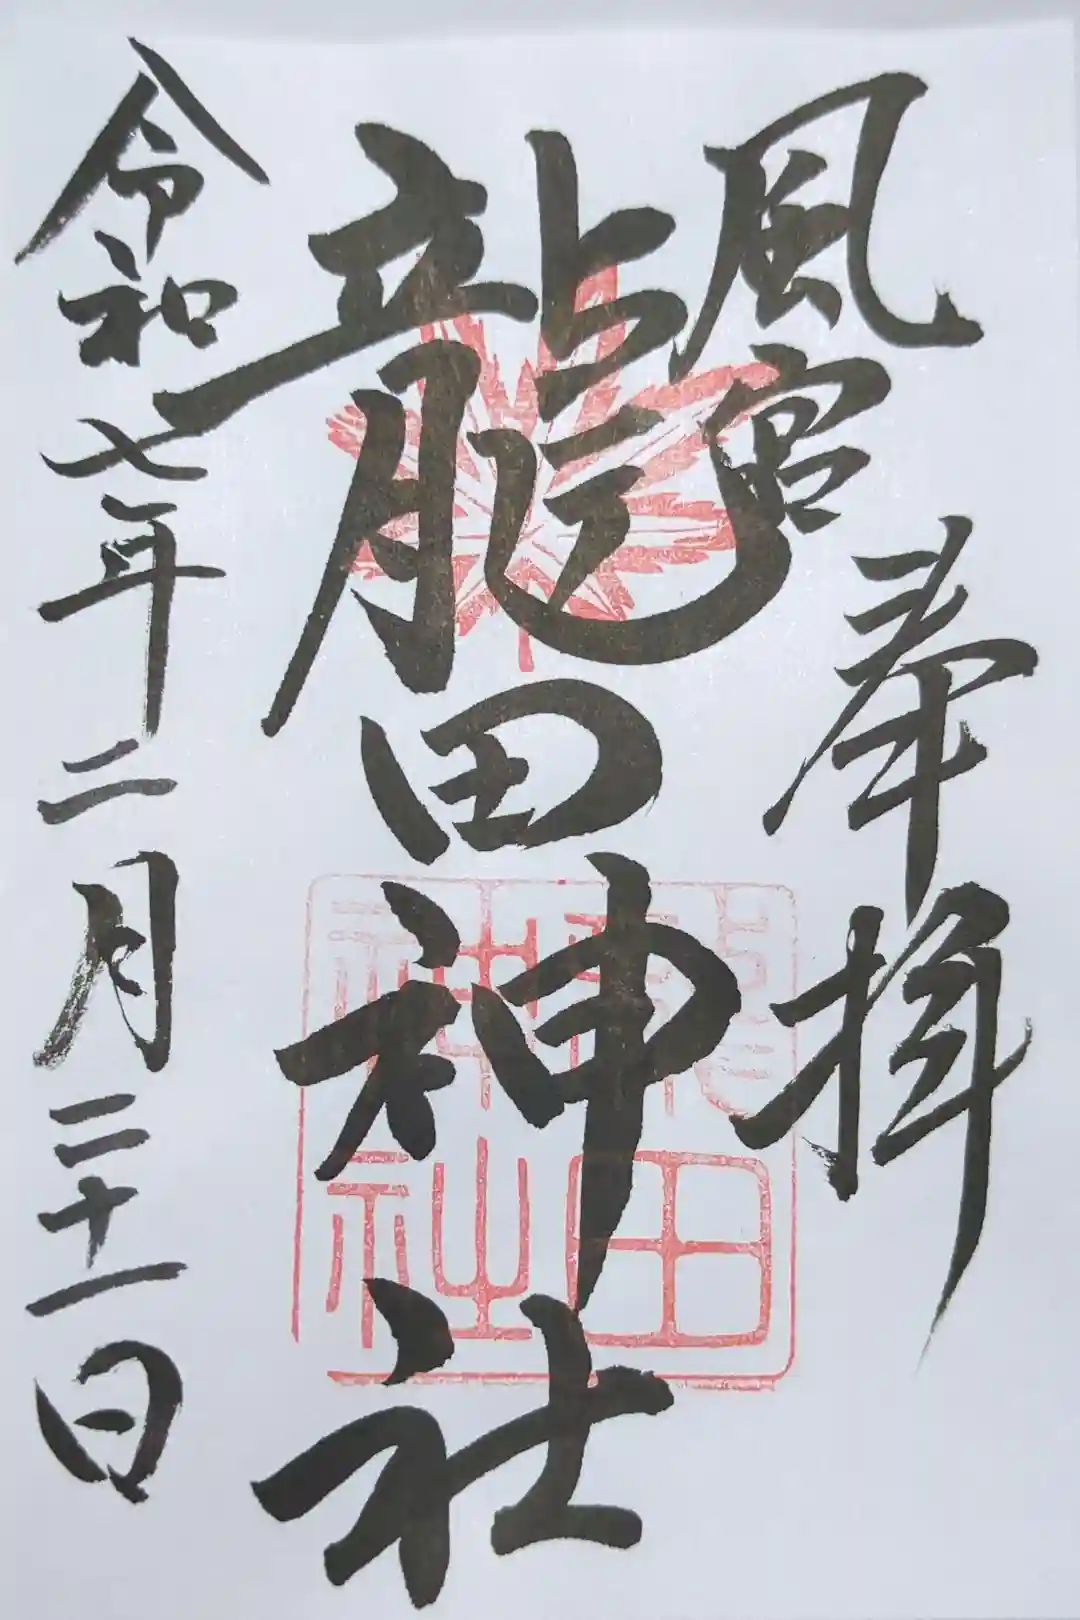 風宮
奉拝
龍田神社
龍田神社
令和七年二月二十一日